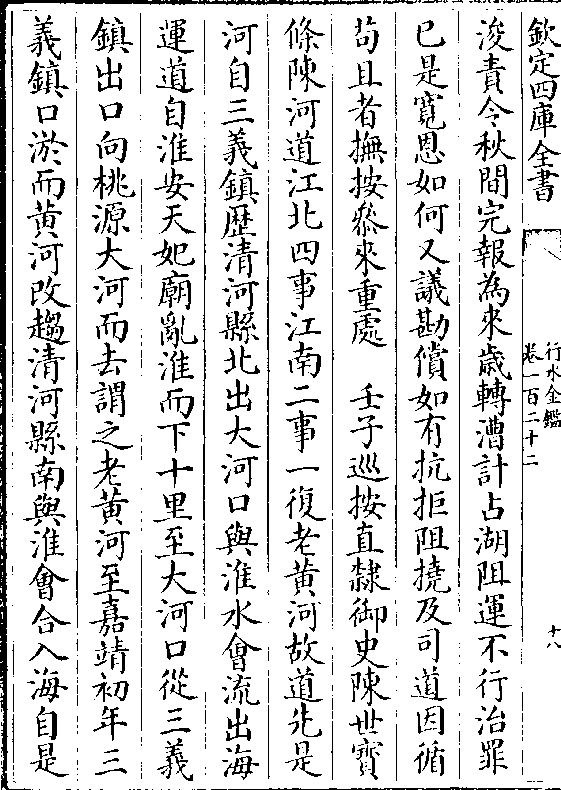 欽定四庫全書
行水金鑑
卷一百二十二
十八
浚責令秋間完報為來歲轉漕計占湖阻運不行治罪
已是寛恩如何又議勘償如有抗拒阻撓及司道因循
茍且者撫按叅來重處　壬子巡按直隸御史陳世寳
條陳河道江北四事江南二事一復老黄河故道先是
河自三義鎮歴清河縣北出大河口與淮水會流出海
運道自淮安天妃廟亂淮而下十里至大河口從三義
鎮出口向桃源大河而去謂之老黄河至嘉靖初年三
義鎮口淤而黄河改趨清河縣南與淮會合入海自是